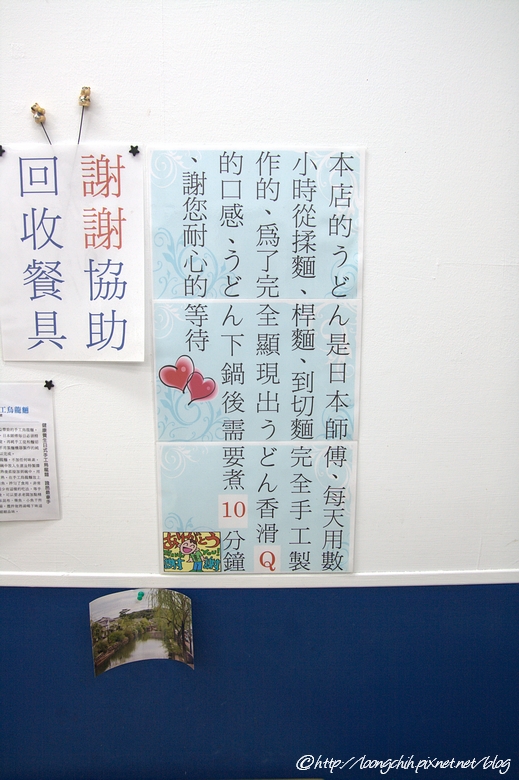 本店的うどん是日本師傅、每天用數
小時從揉麵、桿麵、到切麵完全手工製
作的、為了完全顯現出うどん香滑Q
的口感、うどん下鍋後需要煮10分鐘
、謝您耐心的等待
謝謝協助
回收餐具
ありがとう
©http://loongchih.pixnet.net/blog